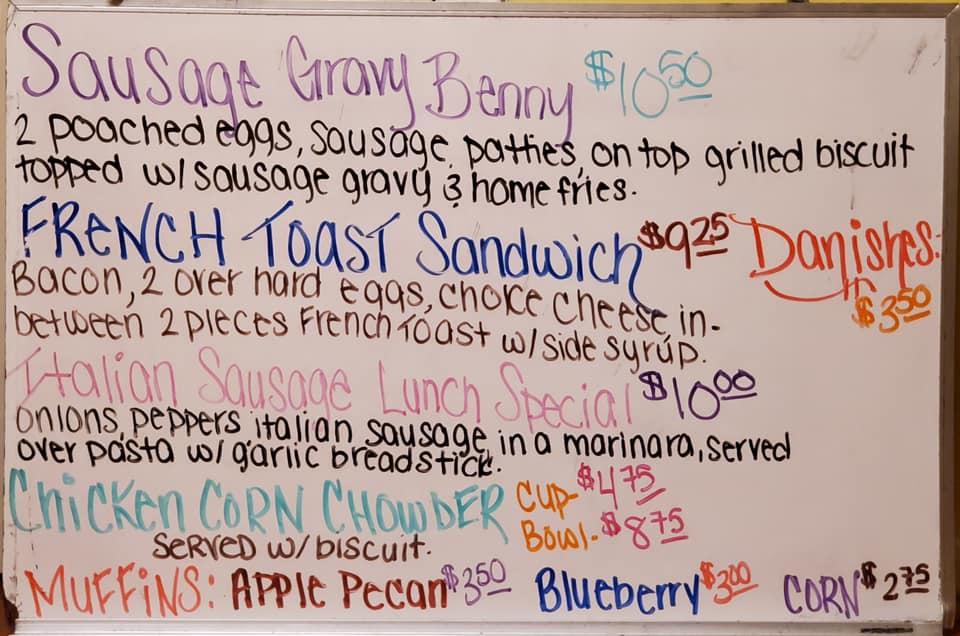 Sausage Gravy Benny $10.50
2 poached eggs, sausage patties, on top grilled biscuit
topped w/ sausage gravy & home fries.
FRENCH TOAST Sandwich $9.25
Danishes:
$3.50
Bacon, 2 over hard eggs, choice cheese in-
between 2 pieces French Toast w/ side syrup.
Italian Sausage Lunch Special $10.00
onions, peppers, italian sausage, in a marinara, served
over pasta w/ garlic breadstick.
Chicken CORN CHOWDER
Cup- $4.75
Bowl- $8.75
SERVED w/ biscuit.
MUFFINS: APPLE Pecan $3.50 Blueberry $3.00 CORN $2.75